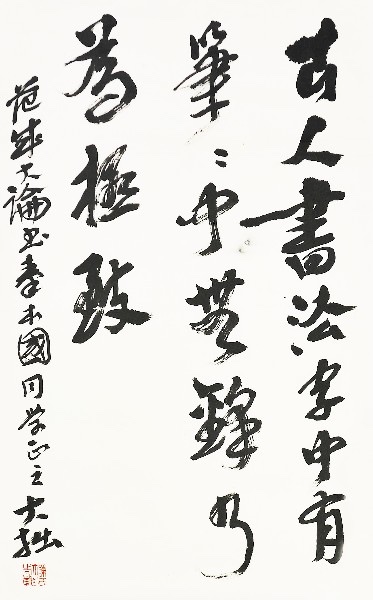 古人書法字中有
筆〻中無鋒乃
為極致
范成大論書國同學正之大拙